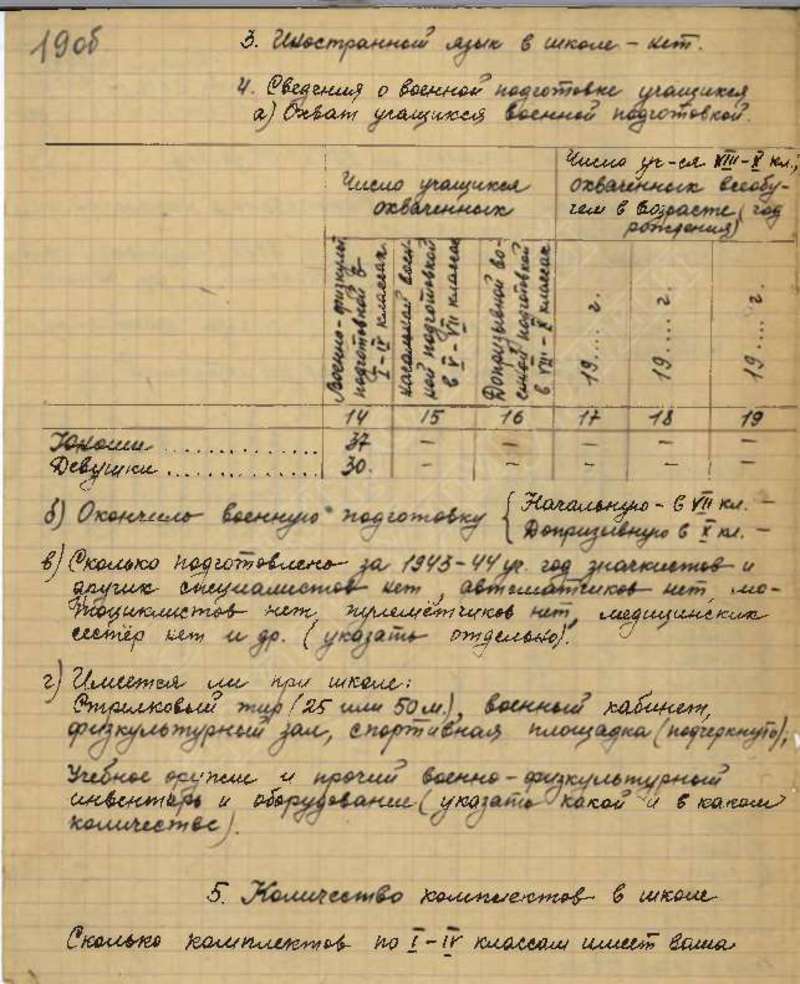 19об
3. Иностранной язык в школе – нет.
4. Сведения о военной подготовке учащихся
а) Охват учащихся военной подготовкой.
Число учащихся
охваченных
Число уч-ся VIII–X кл.,
охваченных всеобу-
чем в возрасте (год
рождения)
Военно-физкульт.
подготовкой в
I–IV классах
Начальной воен-
ной подготовкой
в V–VII классах
Допризывной во-
енной подготовкой
в VIII–X классах
19.... г.
19.... г.
19.... г.
14 15 16 17 18 19
Юноши .............. 37 – – – – –
Девушки .............. 30. – – – – –
б) Окончило военную подготовку { Начальную – в VII кл. –
Допризывную в X кл. –
в) Сколько подготовлено за 1943–44 уч. год значкистов и
других специалистов нет, автоматчиков нет, мо-
тоциклистов нет, пулемётчиков нет, медицинских
сестёр нет и др. (указать отдельно).
г) Имеется ли при школе:
Стрелковый тир (25 или 50 м.), военный кабинет,
физкультурный зал, спортивная площадка (подчеркнуто),
Учебное оружие и прочий военно-физкультурный
инвентарь и оборудование (указать какой и в каком
количестве).
5. Количество комплектов в школе
Сколько комплектов по I–IV классам имеет ваша